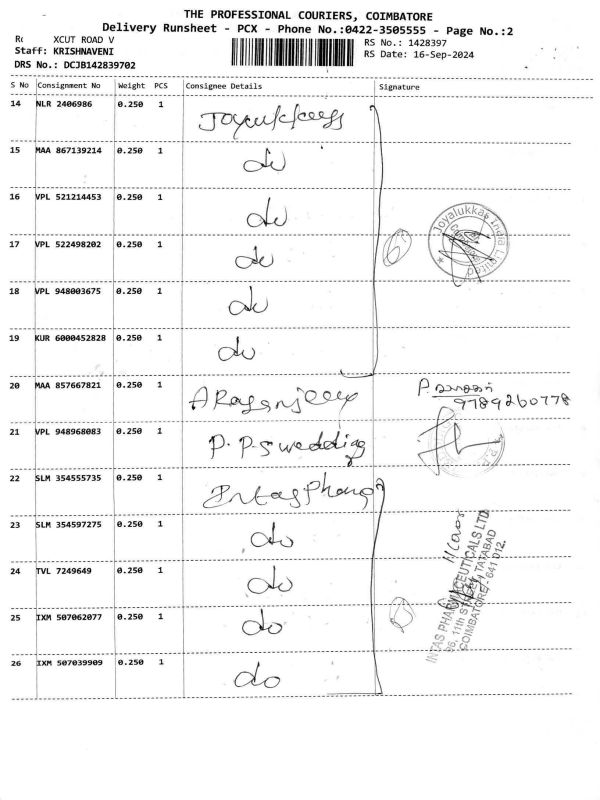 THE PROFESSIONAL COURIERS, COIMBATORE
Delivery Runsheet - PCX - Phone No.:0422-3505555 - Page No.:2
XCUT ROAD V
RS No.: 1428397
Staff: KRISHNAVENI
RS Date: 16-Sep-2024
DRS No.: DCJB142839702
S No Consignment No Weight PCS Consignee Details Signature
14 NLR 2406986 0.250 1 Joyalukkass
15 MAA 867139214 0.250 1 do
16 VPL 521214453 0.250 1 do
17 VPL 522498202 0.250 1 do
Joyalukkas India Limited
18 VPL 948003675 0.250 1 do
19 KUR 6000452828 0.250 1 do
20 MAA 857667821 0.250 1
9789260778
21 VPL 948968083 0.250 1 P.P.S wedding
22 SLM 354555735 0.250 1 Intas Pharma
23 SLM 354597275 0.250 1 do
24 TVL 7249649 0.250 1 do
25 IXM 507062077 0.250 1 do
26 IXM 507039909 0.250 1 do
INTAS PHARMACEUTICALS LTD
11th STREET, TATABAD
COIMBATORE - 641 012.